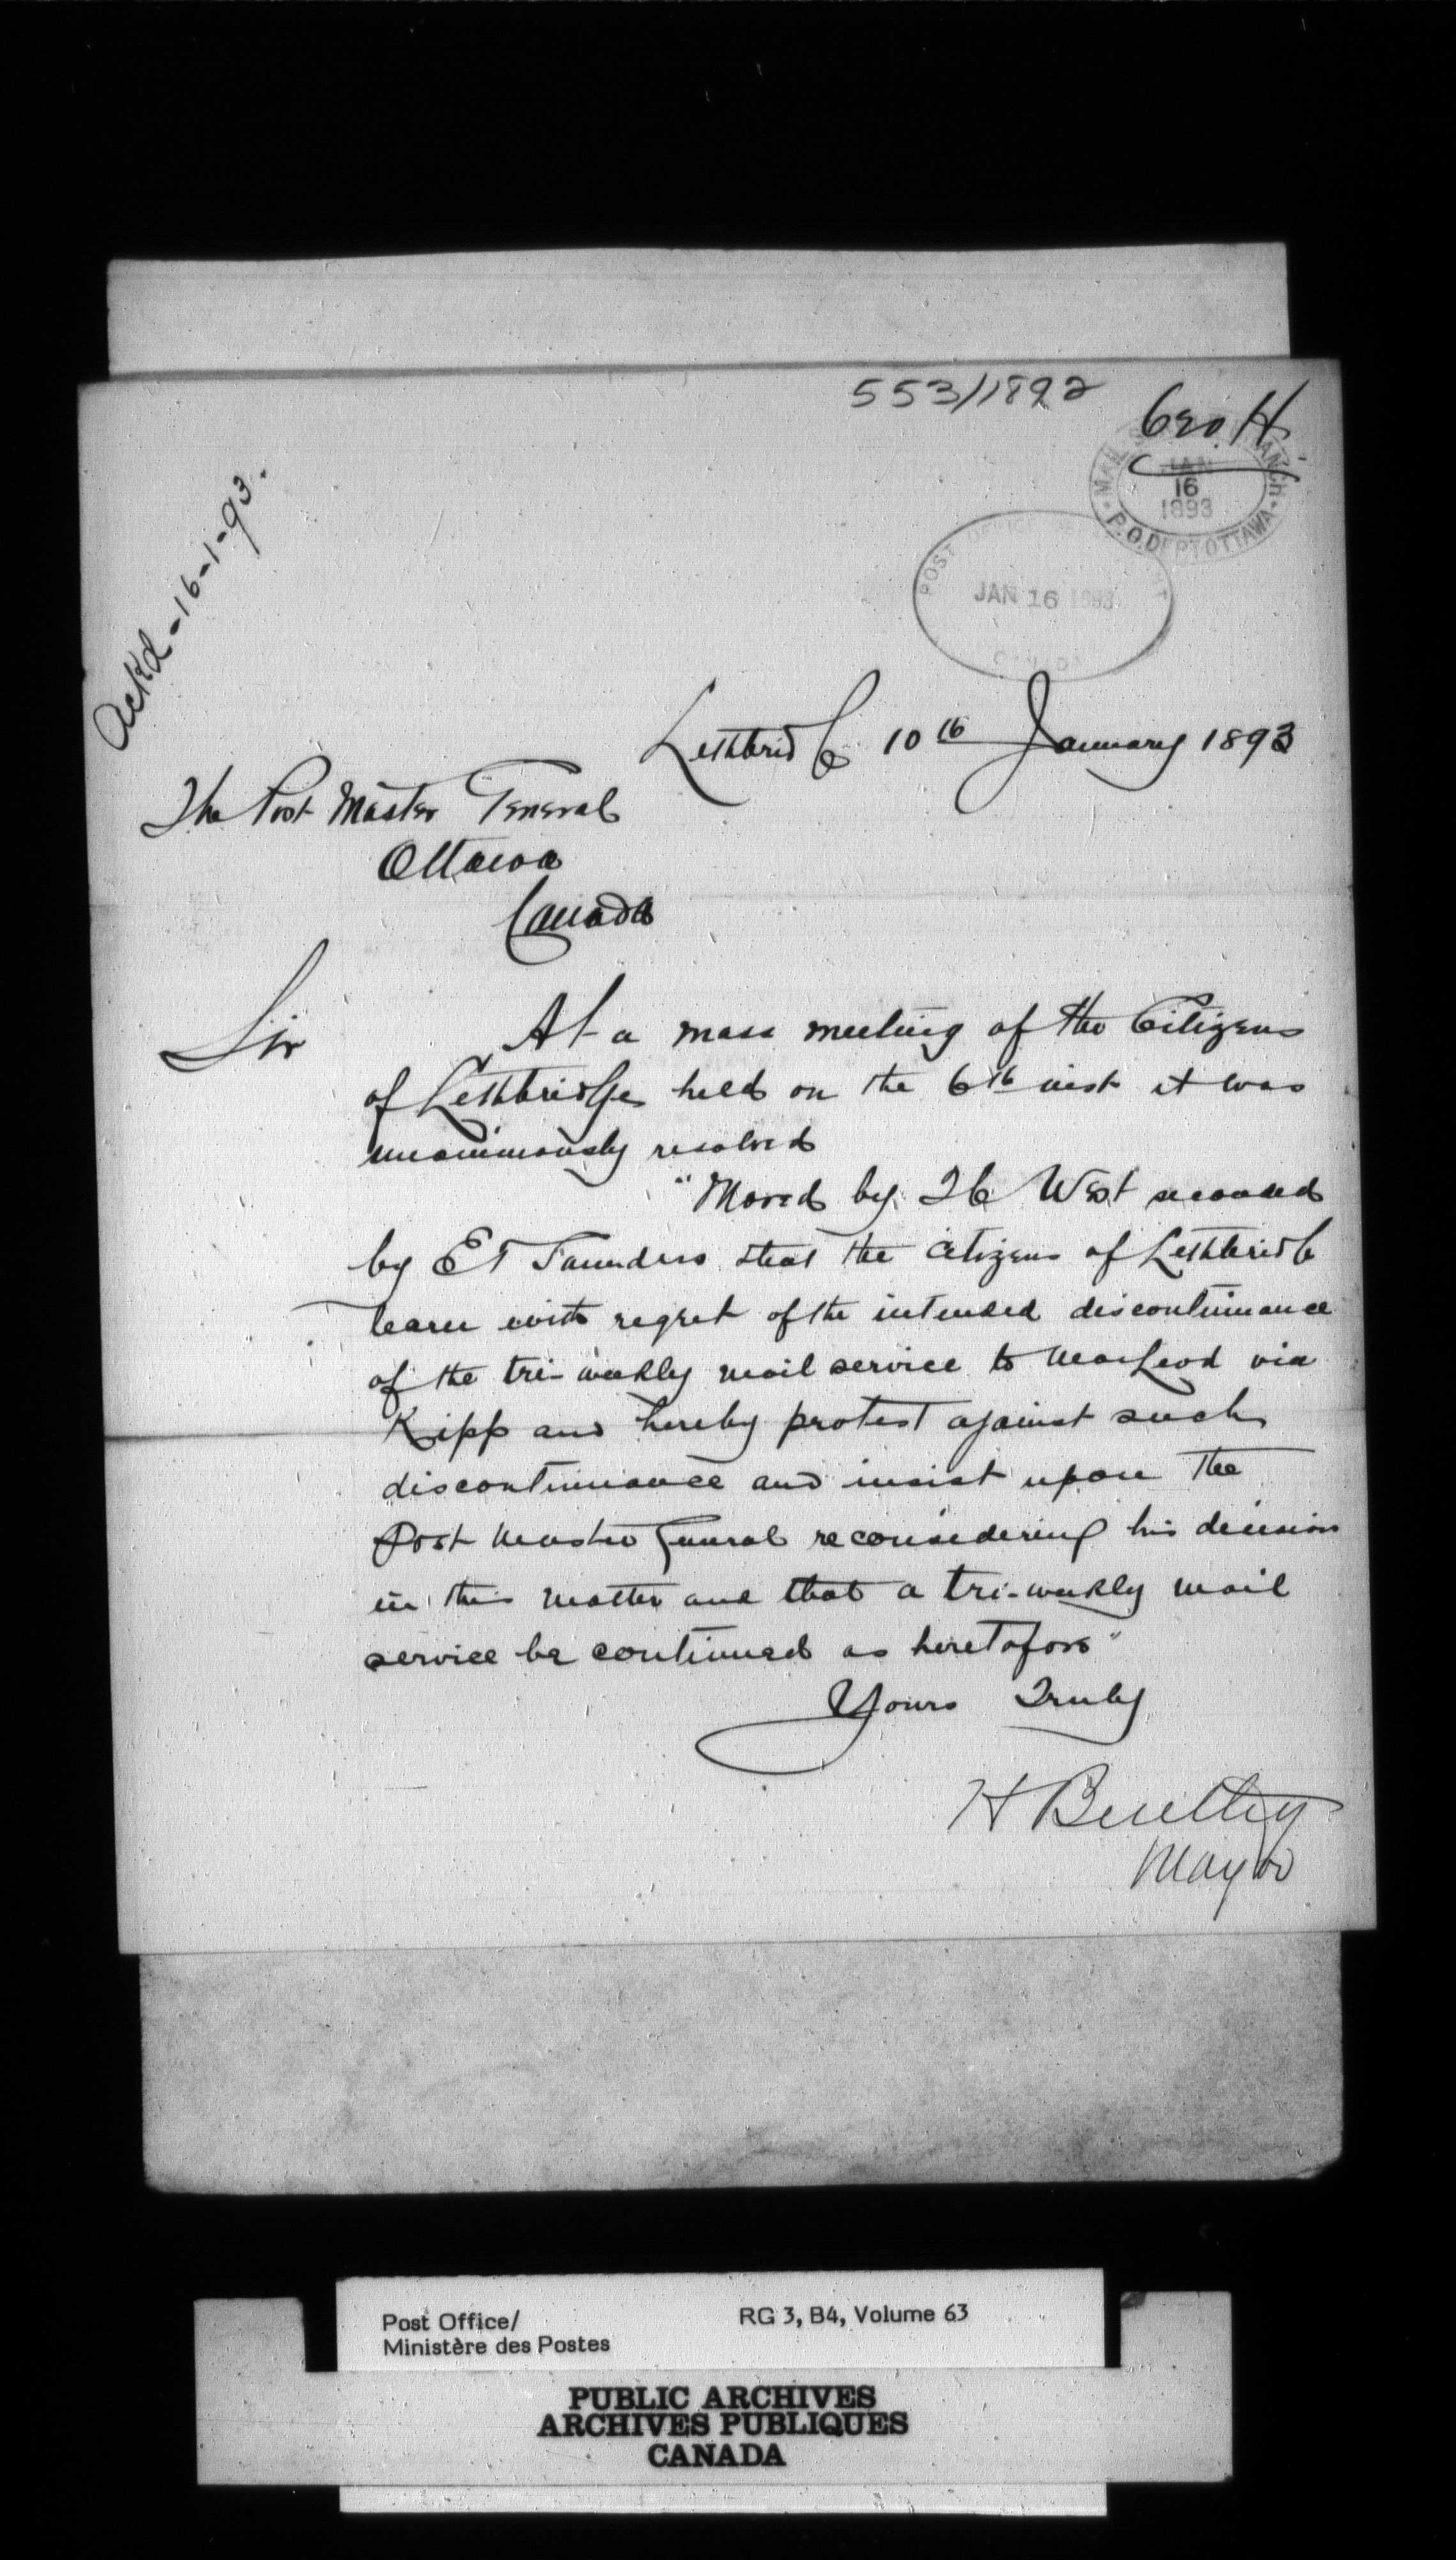 553/1892
Geo. H.
MAIL BRANCH
JAN
16
1893
P.O. DEPT OTTAWA
POST OFFICE
JAN 16 1893
CANADA
Ackd - 16-1-93.
Lethbridge 10th January 1893
The Post Master General
Ottawa
Canada
Sir
At a mass meeting of the Citizens
of Lethbridge held on the 6th inst it was
unanimously resolved
"Moved by West seconded
by E T Saunders that the citizens of Lethbridge
learn with regret of the intended discontinuance
of the tri-weekly mail service to MacLeod via
Kipp and hereby protest against such
discontinuance and insist upon the
Post Master General reconsidering his decision
in this matter and that a tri-weekly mail
service be continued as heretofore"
Yours Truly
H Bentley
Mayor
Post Office/
Ministère des Postes
RG 3, B4, Volume 63
PUBLIC ARCHIVES
ARCHIVES PUBLIQUES
CANADA